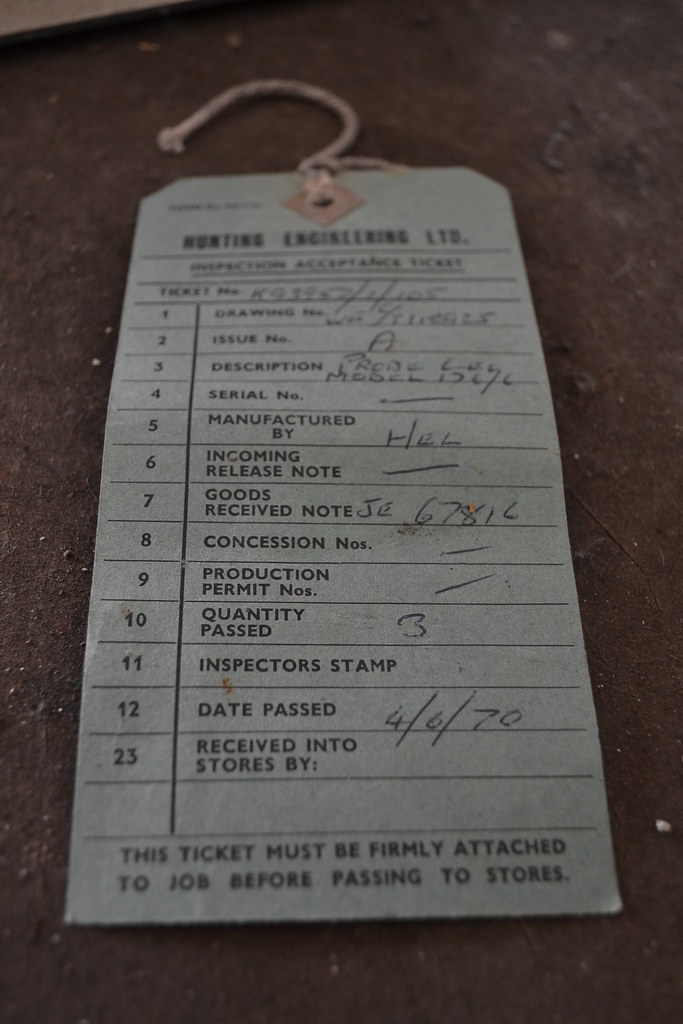 HUNTING ENGINEERING LTD.
INSPECTION ACCEPTANCE TICKET
TICKET No.
1 DRAWING No.
2 ISSUE No. A
3 DESCRIPTION PROBE
MODEL
4 SERIAL No. —
5 MANUFACTURED
BY HEL
6 INCOMING
RELEASE NOTE —
7 GOODS
RECEIVED NOTE JE
8 CONCESSION Nos. —
9 PRODUCTION
PERMIT Nos. —
10 QUANTITY
PASSED 3
11 INSPECTORS STAMP
12 DATE PASSED 4/6/70
23 RECEIVED INTO
STORES BY:
THIS TICKET MUST BE FIRMLY ATTACHED
TO JOB BEFORE PASSING TO STORES.